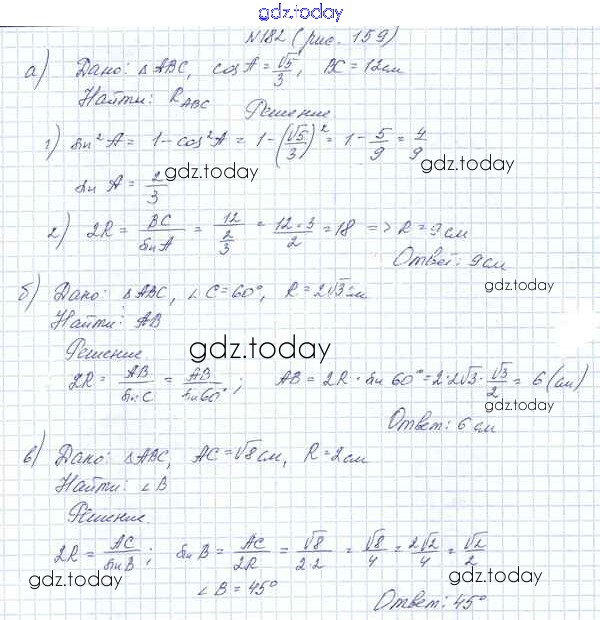 gdz.today
N182 (рис. 159)
а) Дано: △ABC, cosA = √5/3, BC = 12см
Найти: R_ABC
Решение
1) sin²A = 1 - cos²A = 1 - (√5/3)² = 1 - 5/9 = 4/9
gdz.today
sin A = 2/3
gdz.today
2) 2R = BC/sinA = 12/(2/3) = 12·3/2 = 18 => R = 9см
Ответ: 9см
gdz.today
б) Дано: △ABC, ∠C = 60°, R = 2√3см
Найти: AB
Решение
gdz.today
2R = AB/sinC = AB/sin60°; AB = 2R · sin 60° = 2·2√3·√3/2 = 6 (см)
gdz.today
Ответ: 6см
gdz.today
в) Дано: △ABC, AC = √8см, R = 2см
Найти: ∠B
Решение
2R = AC/sinB; sinB = AC/2R = √8/2·2 = √8/4 = 2√2/4 = √2/2
gdz.today
gdz.today
∠B = 45°
Ответ: 45°